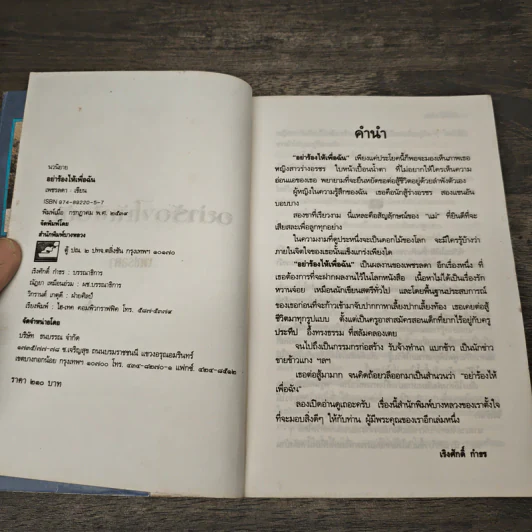 นวนิยาย
อย่าร้องไห้เพื่อฉัน
เพชรลดา : เขียน
ISBN 974-89220-5-7
พิมพ์เมื่อ กรกฎาคม พ.ศ. ๒๕๓๙
จัดพิมพ์โดย
สำนักพิมพ์บางหลวง
ตู้ ปณ. ๒ ปทจ.ตลิ่งชัน กรุงเทพฯ ๑๐๑๗๐
เริงศักดิ์ กำธร : บรรณาธิการ
ณัฐยา เหมือนอ่วม : ผช.บรรณาธิการ
วิกรานต์ เกตุดี : ฝ่ายศิลป์
เรียงพิมพ์ : ไฮ-เทค คอมพิวกราฟฟิค โทร.
จัดจำหน่ายโดย
บริษัท ธนบรรณ จำกัด
ซ.เจริญสุข ถนนบรมราชชนนี แขวงอรุณอมรินทร์
เขตบางกอกน้อย กรุงเทพฯ ๑๐๗๐๐ โทร. ๔๓๔-๘๒๗๐-๑ แฟกซ์. ๔๒๔-๘๕๑๒
ราคา ๒๑๐ บาท
คำนำ
"อย่าร้องไห้เพื่อฉัน" เพียงแค่ประโยคนี้ก็พอจะมองเห็นภาพเธอ
หญิงสาวร่างอรชร ใบหน้าเปื้อนน้ำตา ที่ไม่อยากให้ใครเห็นความ
อ่อนแอของเธอ พยายามที่จะยืนหยัดขอต่อสู้ชีวิตอยู่ด้วยลำพังตัวเอง
ผู้หญิงในความรู้สึกของฉัน เธอคือนักสู้ร่างอรชร สองแขนอัน
บอบบาง
สองขาที่เรียวงาม นี่แหละคือสัญลักษณ์ของ "แม่" ที่ยินดีที่จะ
เสียสละเพื่อลูกทุกอย่าง
ในความงามที่ดูประหนึ่งจะเป็นดอกไม้ของโลก จะมีใครรู้บ้างว่า
ภายในจิตใจของเธอนั้นแข็งแกร่งเพียงใด
"อย่าร้องไห้เพื่อฉัน" เป็นผลงานของเพชรลดา อีกเรื่องหนึ่ง ที่
เธอต้องการที่จะฝากผลงานไว้ในโลกหนังสือ เนื้อหาไม่ได้เป็นเรื่องรัก
หวานจ๋อย เหมือนนักเขียนสตรีทั่วไป และโดยพื้นฐานประสบการณ์
ของเธอก่อนที่จะก้าวเข้ามาจับปากกาหาเลี้ยงปากเลี้ยงท้อง เธอเคยต่อสู้
ชีวิตมาทุกรูปแบบ ตั้งแต่เป็นครูอาสาสมัครสอนเด็กที่ยากไร้อยู่กับครู
ประทีป อึ๊งทรงธรรม ที่สลัมคลองเตย
จนไปถึงเป็นกรรมกรก่อสร้าง รับจ้างทำนา แบกข้าว เป็นนักข่าว
ขายข้าวแกง ฯลฯ
เธอต่อสู้มามาก จนคิดถ้อยวลีออกมาเป็นสำนวนว่า "อย่าร้องไห้
เพื่อฉัน"
ลองเปิดอ่านดูเถอะครับ เรื่องนี้สำนักพิมพ์บางหลวงของเราตั้งใจ
ที่จะมอบสิ่งดีๆ ให้กับท่าน ผู้มีพระคุณของเราอีกเล่มหนึ่ง
เริงศักดิ์ กำธร